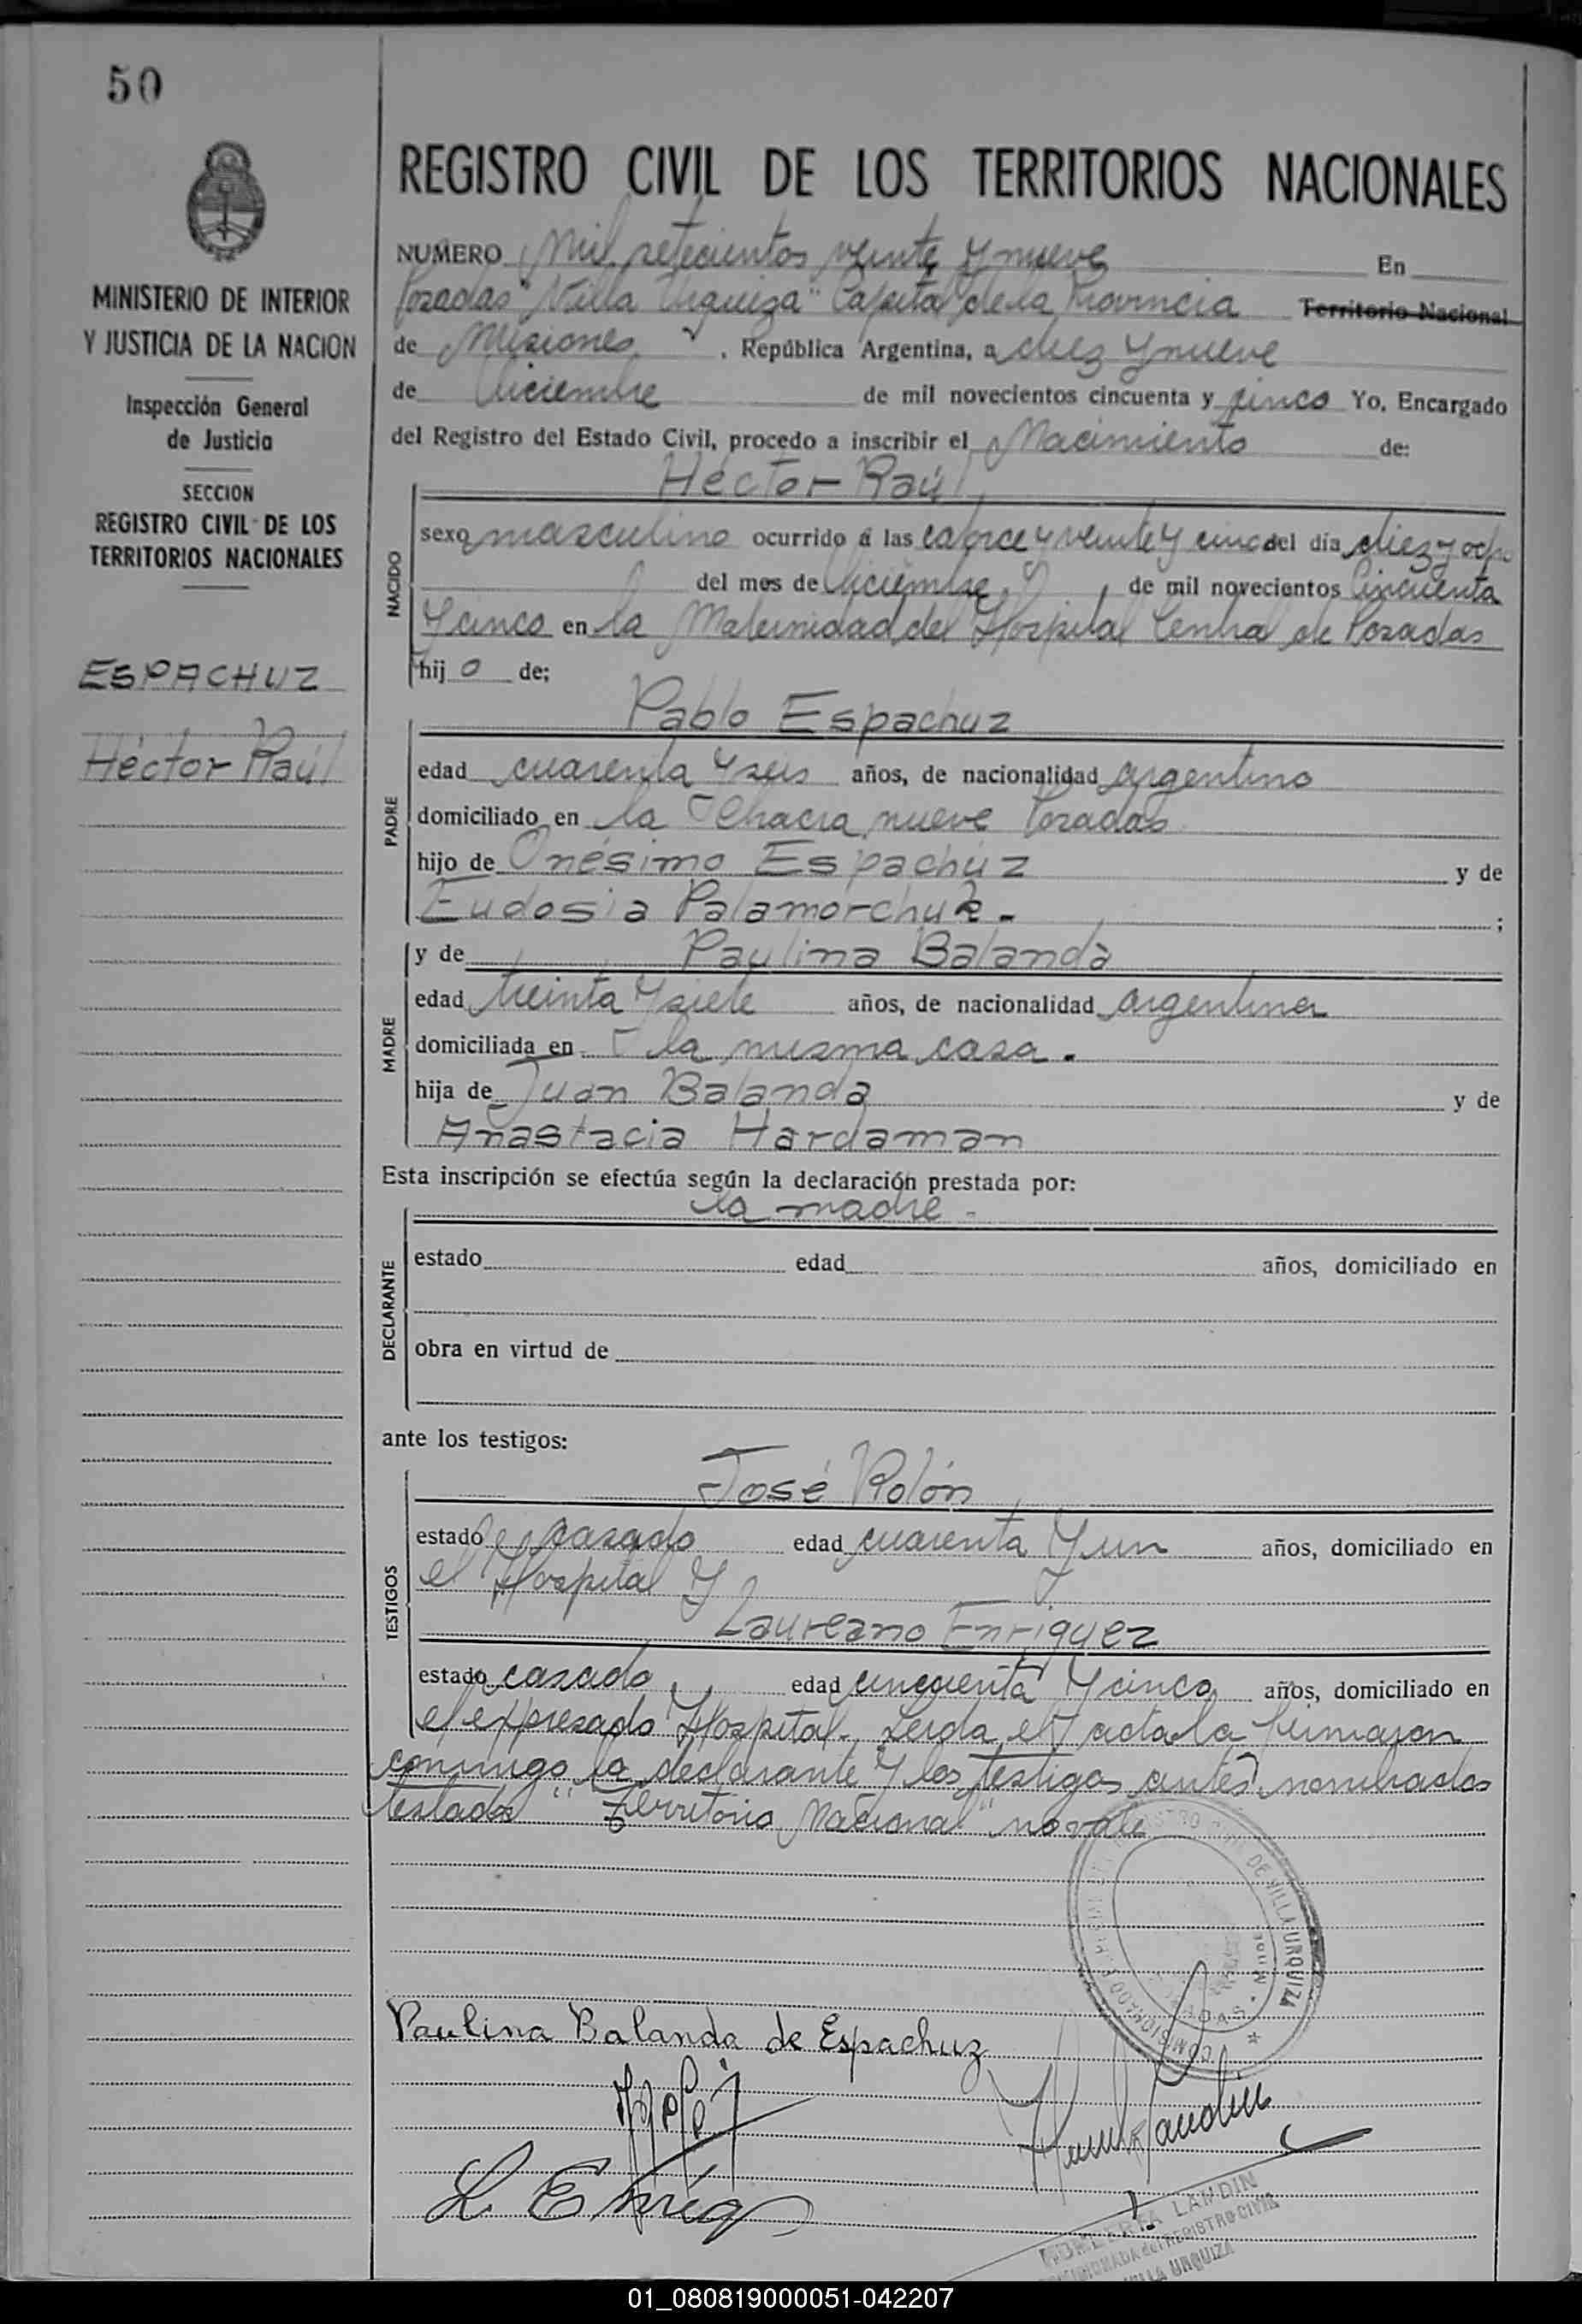 50
MINISTERIO DE INTERIOR
Y JUSTICIA DE LA NACION
Inspección General
de Justicia
SECCION
REGISTRO CIVIL DE LOS
TERRITORIOS NACIONALES
ESPACHUZ
Héctor Raúl
REGISTRO CIVIL DE LOS TERRITORIOS NACIONALES
NUMERO Mil setecientos veinte y nueve En
Posadas "Villa Urquiza" Capital de la Provincia Territorio Nacional
de Misiones, República Argentina, a diez y nueve
de Diciembre de mil novecientos cincuenta y cinco Yo, Encargado
del Registro del Estado Civil, procedo a inscribir el Nacimiento de:
Héctor Raúl
NACIDO
sexo masculino ocurrido a las catorce y veinte y cinco del día diez y ocho
del mes de Diciembre de mil novecientos Cincuenta
y cinco en la Maternidad del Hospital Central de Posadas
hijo de;
Pablo Espachuz
PADRE
edad cuarenta y seis años, de nacionalidad argentino
domiciliado en la Chacra nueve Posadas
hijo de Onésimo Espachuz y de
Eudosia Palamorchuk. ;
y de Paulina Balanda
MADRE
edad treinta y siete años, de nacionalidad argentina
domiciliada en la misma casa.
hija de Juan Balanda y de
Anastacia Hardaman
Esta inscripción se efectúa según la declaración prestada por:
la madre -
DECLARANTE
estado edad años, domiciliado en
obra en virtud de
ante los testigos:
José Rolón
TESTIGOS
estado casado edad cuarenta y un años, domiciliado en
el Hospital y
Laureano Enriquez
estado casado, edad cincuenta y cinco años, domiciliado en
el expresado Hospital. Leida el acta la firmaron
conmigo la declarante y los testigos antes nombrados
testado "Territorio Nacional" no vale
DE VILLA URQUIZA
Paulina Balanda de Espachuz
L. Enriq
LANDIN
del REGISTRO CIVIL
VILLA URQUIZA
01_080819000051-042207